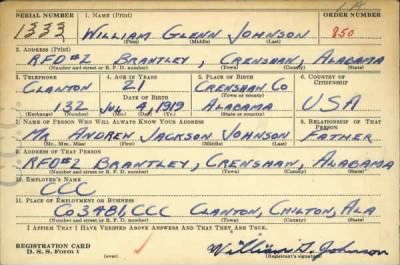 1 A
SERIAL NUMBER 1. NAME (Print) ORDER NUMBER
1333 WILLIAM GLENN JOHNSON 850
(First) (Middle) (Last)
2. ADDRESS (Print)
RFD#2 BRANTLEY, CRENSHAW, ALABAMA
(Number and street or R. F. D. number) (Town) (County) (State)
3. TELEPHONE 4. AGE IN YEARS 5. PLACE OF BIRTH 6. COUNTRY OF CITIZENSHIP
CLANTON 21 CRENSHAW CO
DATE OF BIRTH (Town or county)
132 JUL 4, 1919 ALABAMA USA
(Exchange) (Number) (Mo.) (Day) (Yr.) (State or country)
7. NAME OF PERSON WHO WILL ALWAYS KNOW YOUR ADDRESS 8. RELATIONSHIP OF THAT PERSON
MR. ANDREW JACKSON JOHNSON FATHER
(Mr., Mrs., Miss) (First) (Middle) (Last)
9. ADDRESS OF THAT PERSON
RFD#2 BRANTLEY, CRENSHAW, ALABAMA
(Number and street or R. F. D. number) (Town) (County) (State)
10. EMPLOYER'S NAME
CCC
11. PLACE OF EMPLOYMENT OR BUSINESS
CO 3481, CCC CLANTON, CHILTON, ALA
(Number and street or R. F. D. number) (Town) (County) (State)
I AFFIRM THAT I HAVE VERIFIED ABOVE ANSWERS AND THAT THEY ARE TRUE.
REGISTRATION CARD
D. S. S. FORM 1 (over) William G. Johnson
(Registrant's signature)